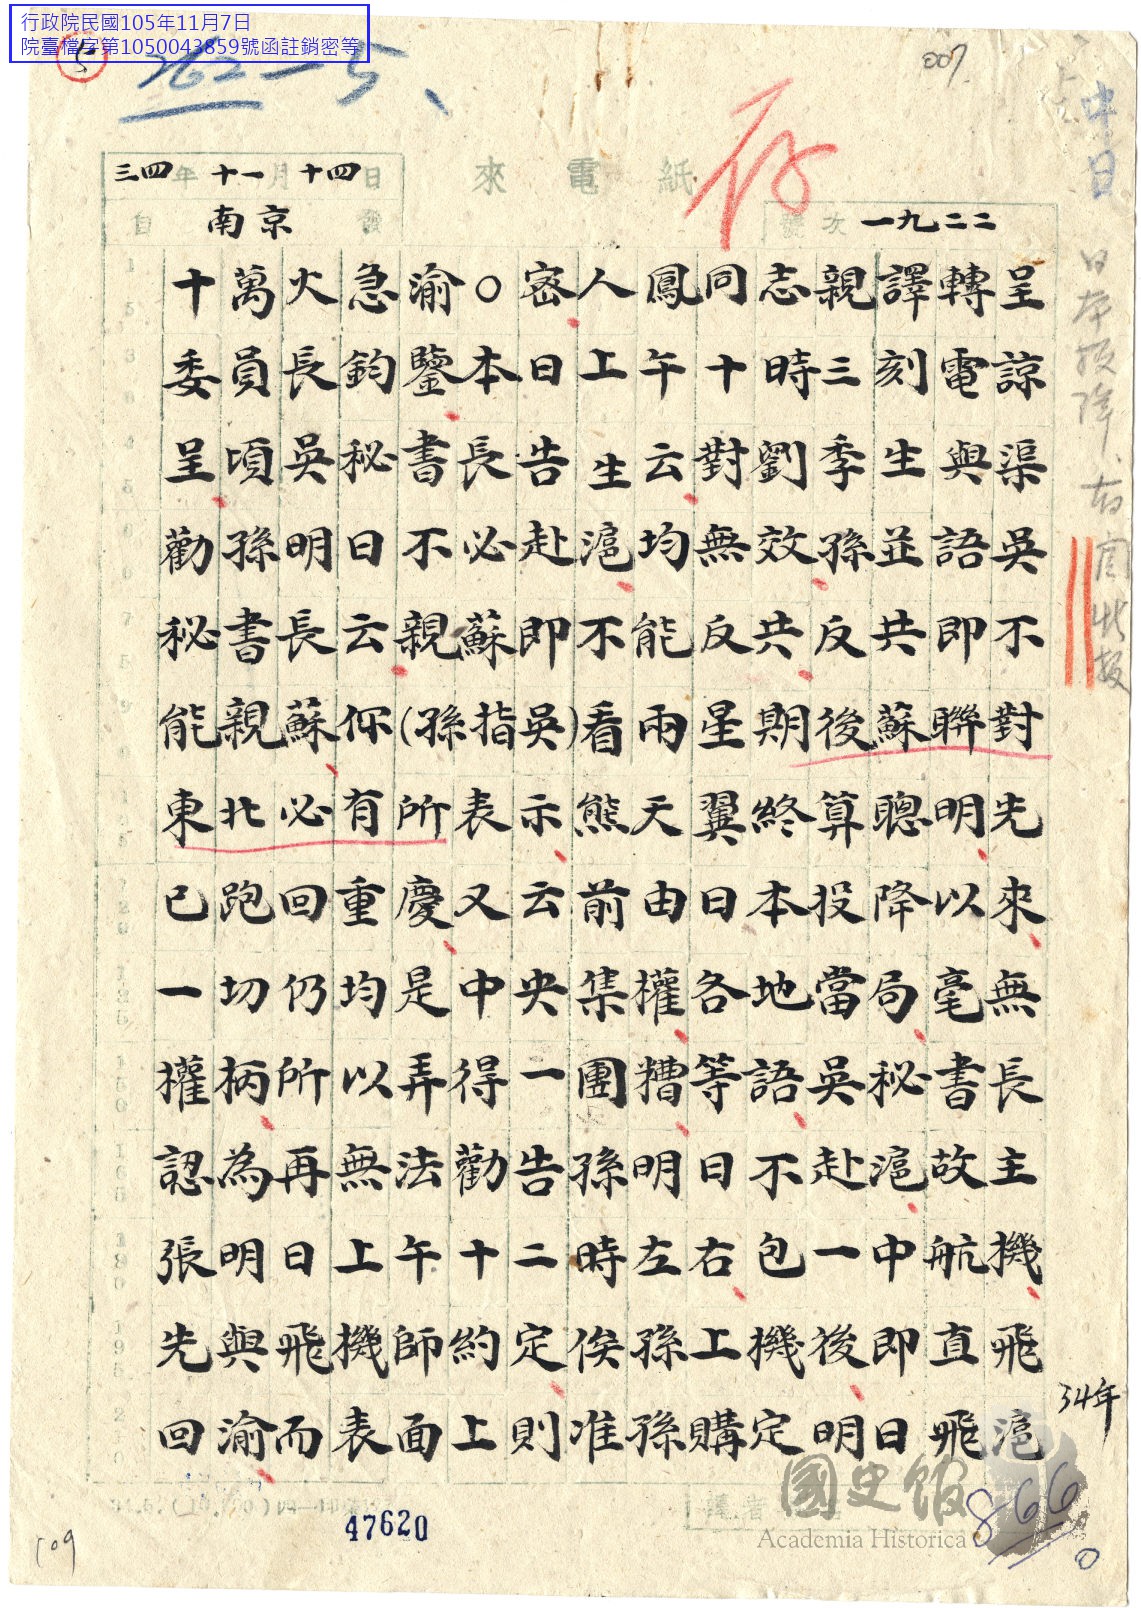 行政院民國105年11月7日
院臺檔字第1050043859號函註銷密等
5
262-5、
007
存
中日
日本投降
來電紙
三四年十一月十四日
自南京發
號次一九二二
十萬火急渝○密人鳳同志親譯轉呈
委員長鈞鑒本日上午十時三刻電諒
呈頃吳秘書長告生云對劉季生與渠
勸孫明日不必赴滬均無效孫並語吳
秘書長云親蘇即不能反共反共即不
能親蘇你(孫指吳)看兩星期後蘇聯對
東北必有所表示熊天翼終算聰明先
已跑回重慶又云前由日本投降以來
一切仍均是中央集權各地當局毫無
權柄所以弄得一團糟等語吳秘書長
認為再無法勸告孫明日不赴滬故主
張明日上午十二時左右包一中航機
先與飛機師約定俟孫上機後即直飛
回渝而表面上則准孫購定明日飛滬
34年
國史館
Academia Historica
866
47620
109